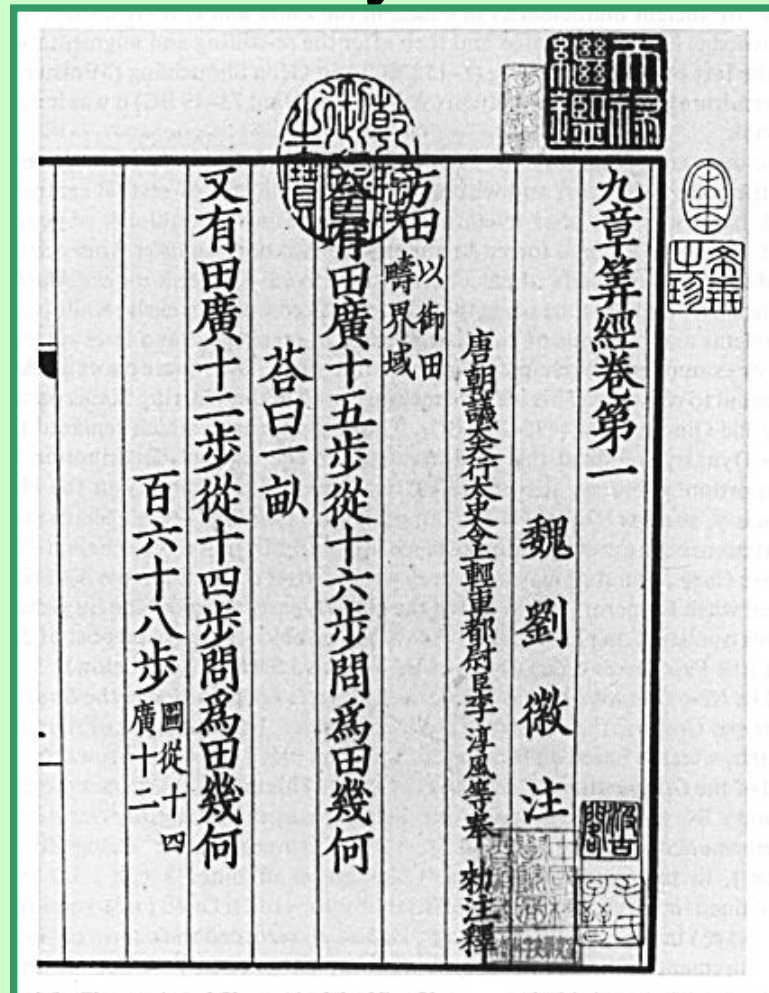 天祿繼鑑
乾隆御覽之寶
希世之珍
九章筭經卷第一
魏劉徽注
唐朝議大夫行太史令上輕車都尉臣李淳風等奉 勑注釋
方田以御田
疇界域
今有田廣十五步從十六步問爲田幾何
荅曰一畝
又有田廣十二步從十四步問爲田幾何
百六十八步圖從十四
廣十二
汲古閣